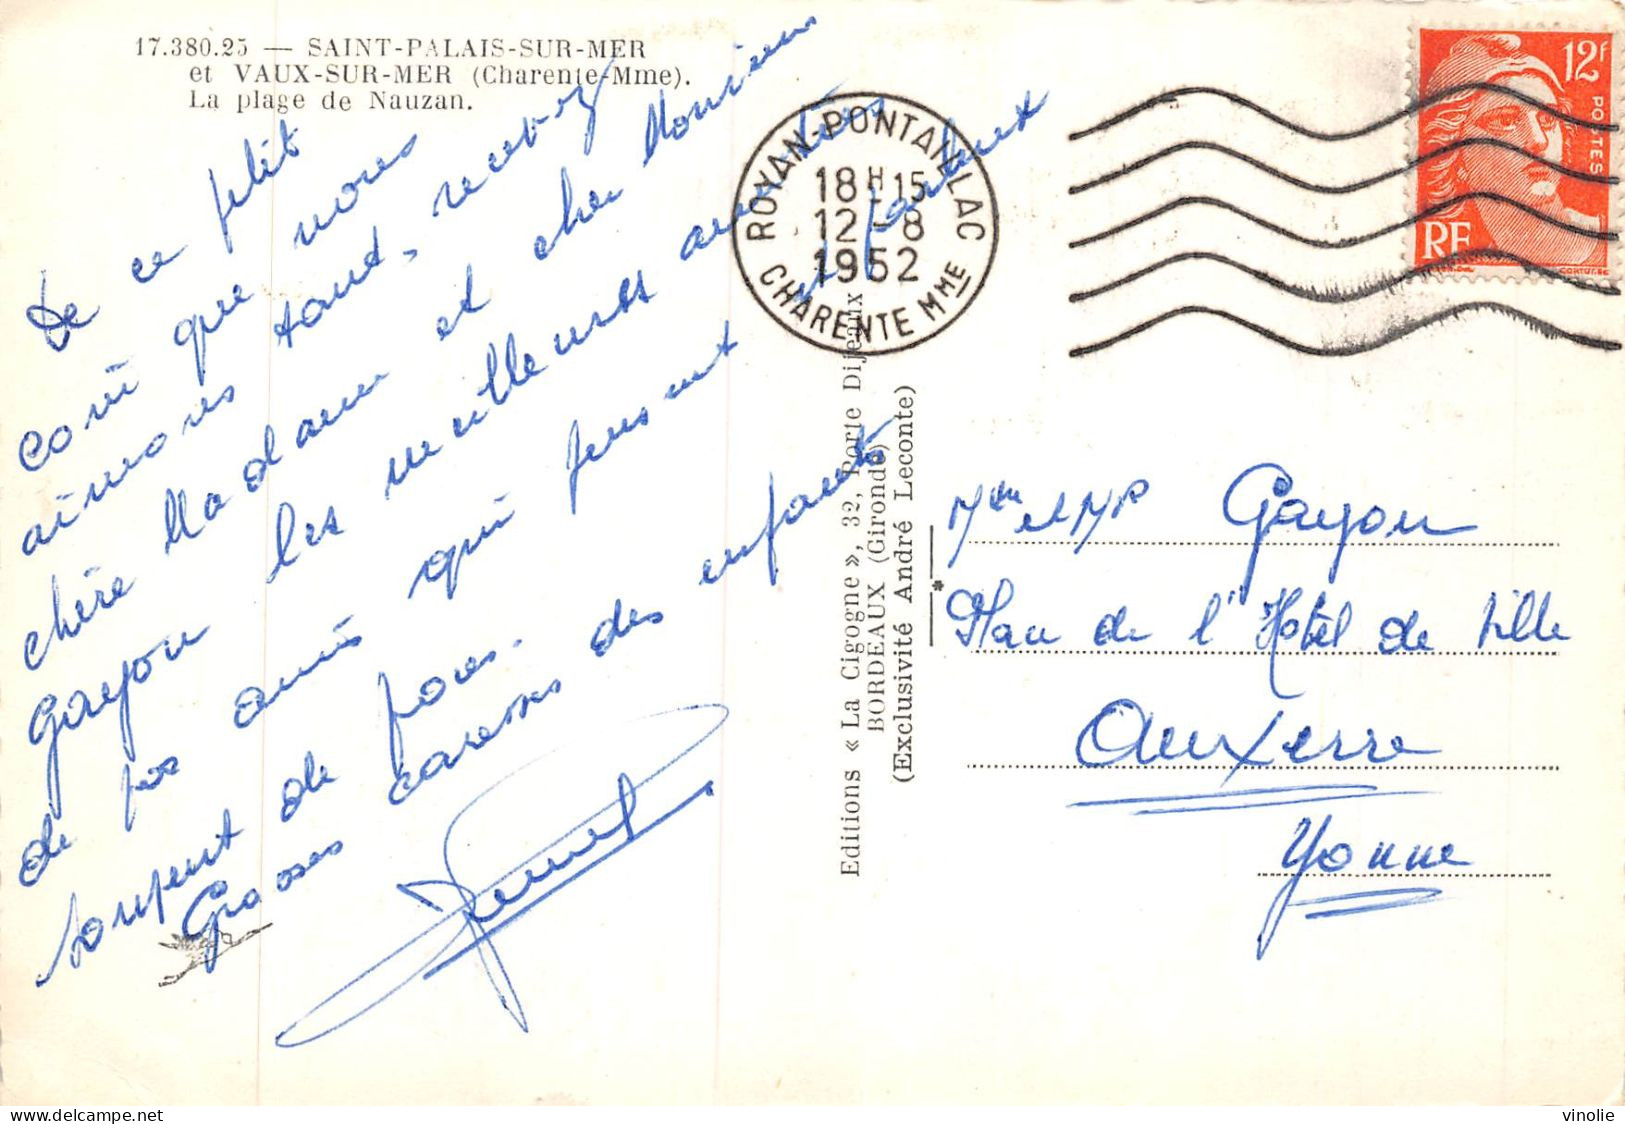 17.380.25 — SAINT-PALAIS-SUR-MER
et VAUX-SUR-MER (Charente-Mme).
La plage de Nauzan.
De ce petit
coin que nous
aimons tant, recevez
chère Madame et cher Monsieur
Gayou les meilleures amitiés
de vos amis qui pensent et parlent
souvent de vous.
Grosses caresses des enfants
ROYAN-PONTAILLAC
18H15
12-8
1952
CHARENTE MME
12F
POSTES
RF
Editions « La Cigogne », 32, Porte Dijeaux
BORDEAUX (Gironde)
(Exclusivité André Leconte)
Mme et Mr Gayou
Place de l'Hôtel de Ville
Auxerre
Yonne
vinolie